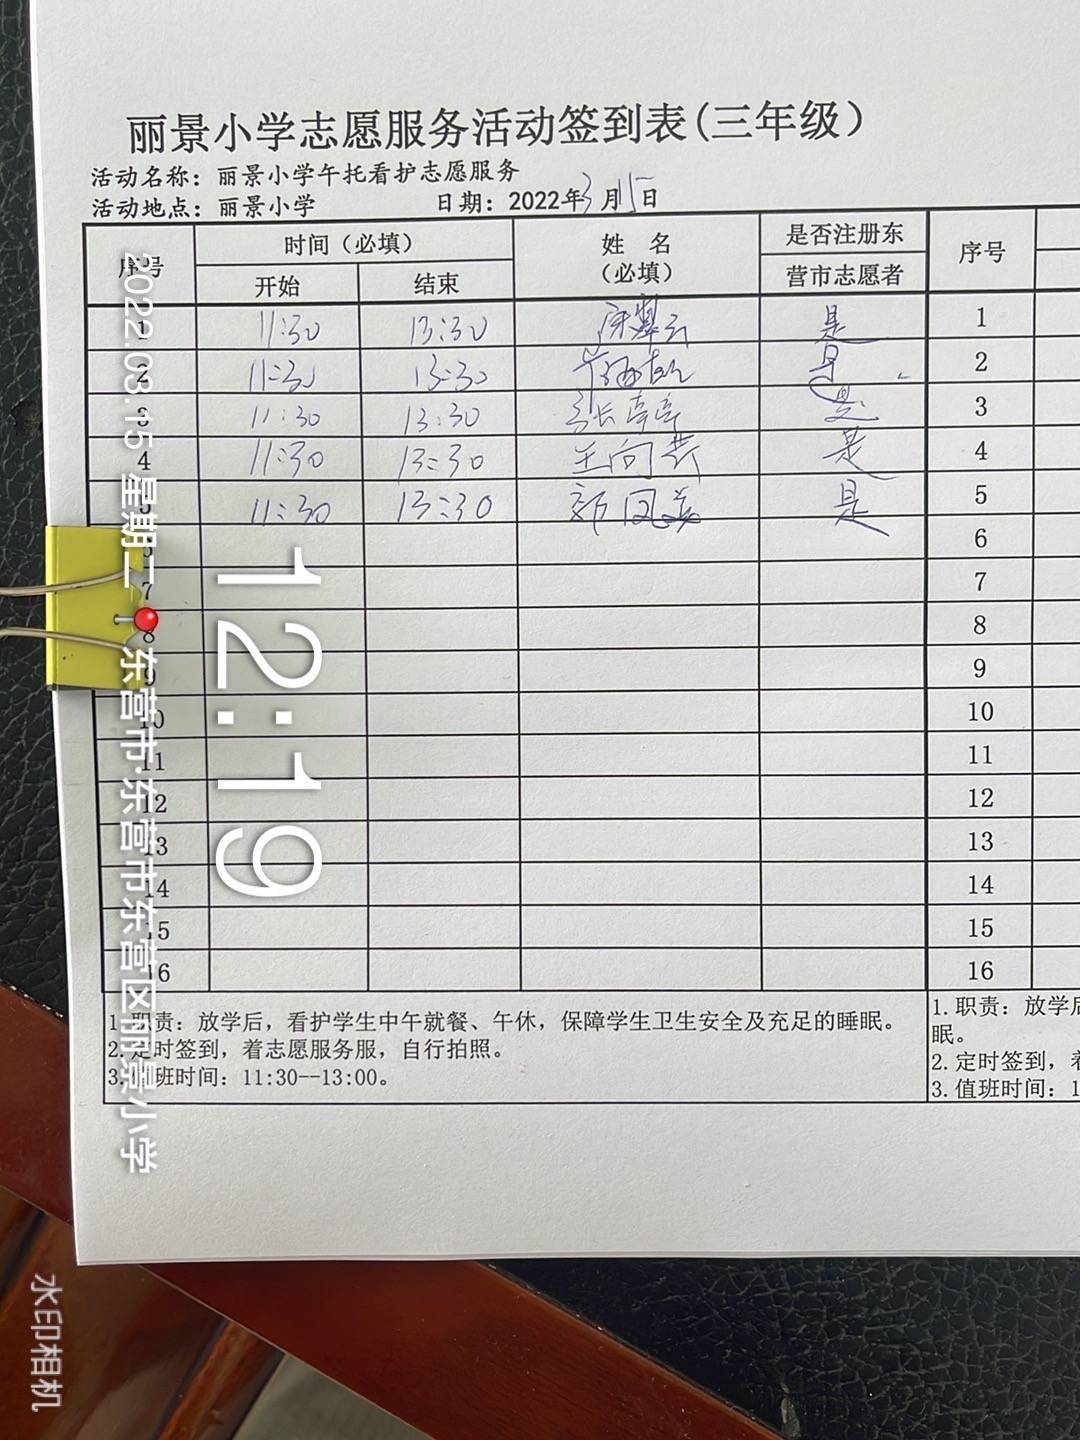 丽景小学志愿服务活动签到表(三年级)
活动名称：丽景小学午托看护志愿服务
活动地点：丽景小学 日期：2022年3月15日
序号 时间（必填） 姓 名 是否注册东 序号
开始 结束 （必填） 营市志愿者
1 11:30 13:30 是 1
2 11:30 13:30 是 2
3 11:30 13:30 张 是 3
4 11:30 13:30 王向 是 4
5 11:30 13:30 郭凤 是 5
6 6
7 7
8 8
9 9
10 10
11 11
12 12
13 13
14 14
15 15
16 16
1.职责：放学后，看护学生中午就餐、午休，保障学生卫生安全及充足的睡眠。
2.定时签到，着志愿服务服，自行拍照。
3. 班时间：11:30--13:00。
1.职责：放学后
眠。
2.定时签到，着
3.值班时间：1
2022.03.15 星期二
东营市·东营市东营区丽景小学
12:19
水印相机